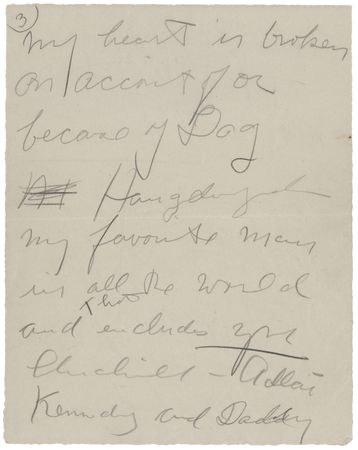 3
my heart is broken
on account of or
because of Dag
my favorite man
in all the world
and that includes you
Churchill – Adlai
Kennedy and Daddy